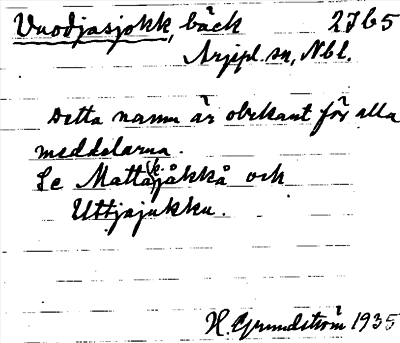 Vuodjasjokk, bäck 27b5
Arjepl. sn, Nbl.
Detta namn är obekant för alla
meddelarna.
Se Mattajåkkå och
Uttjajukku.
H. Grundström 1935